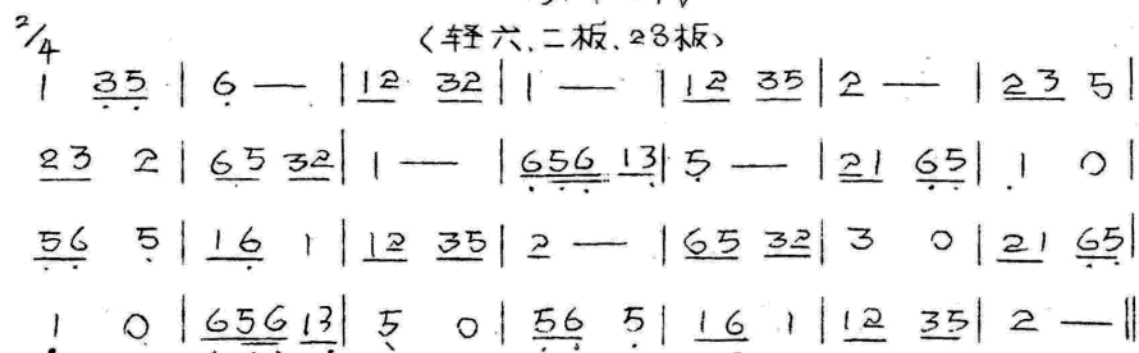 2/4
（轻六、二板、28板）
1 3̣5̣ | 6̣ — | 12 32 | 1 — | 12 35 | 2 — | 23 5 |
23 2 | 65 32 | 1 — | 6̣5̣6̣ 13̣ | 5̣ — | 21 6̣5̣ | 1̣ 0 |
5̣6̣ 5̣ | 16̣ 1 | 12 35 | 2 — | 65 32 | 3 0 | 21 6̣5̣ |
1̣ 0 | 6̣5̣6̣ 13̣ | 5̣ 0 | 5̣6̣ 5̣ | 16̣ 1 | 12 35 | 2 — ‖